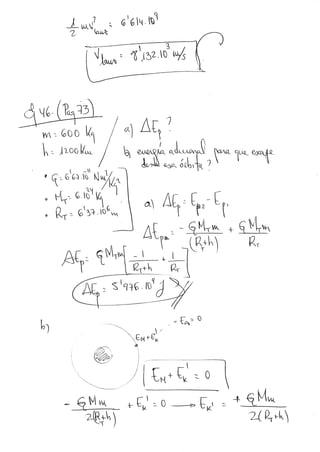 1/2 m v²lanz = 6'614.10⁹
Vlanz = 8'132.10³ m/s
46. (Pag 73)
m = 600 Kg
h = 1200 Km
• G = 6'67.10⁻¹¹ Nm²/Kg²
• M_T = 6.10²⁴ Kg
• R_T = 6'37.10⁶ m
a) ΔEp ?
b) energía adicional para que escape
desde esa órbita ?
a) ΔEp = Ep₂ - Ep₁
ΔEp = - G M_T m / (R_T+h) + G M_T m / R_T
ΔEp = G M_T m [ -1/(R_T+h) + 1/R_T ]
ΔEp = 5'976.10⁹ J
b)
E_M+E_K' ... - E_M = 0
E_M + E_K' = 0
- G M m / 2(R_T+h) + E_K' = 0 → E_K' = + G M m / 2(R_T+h)